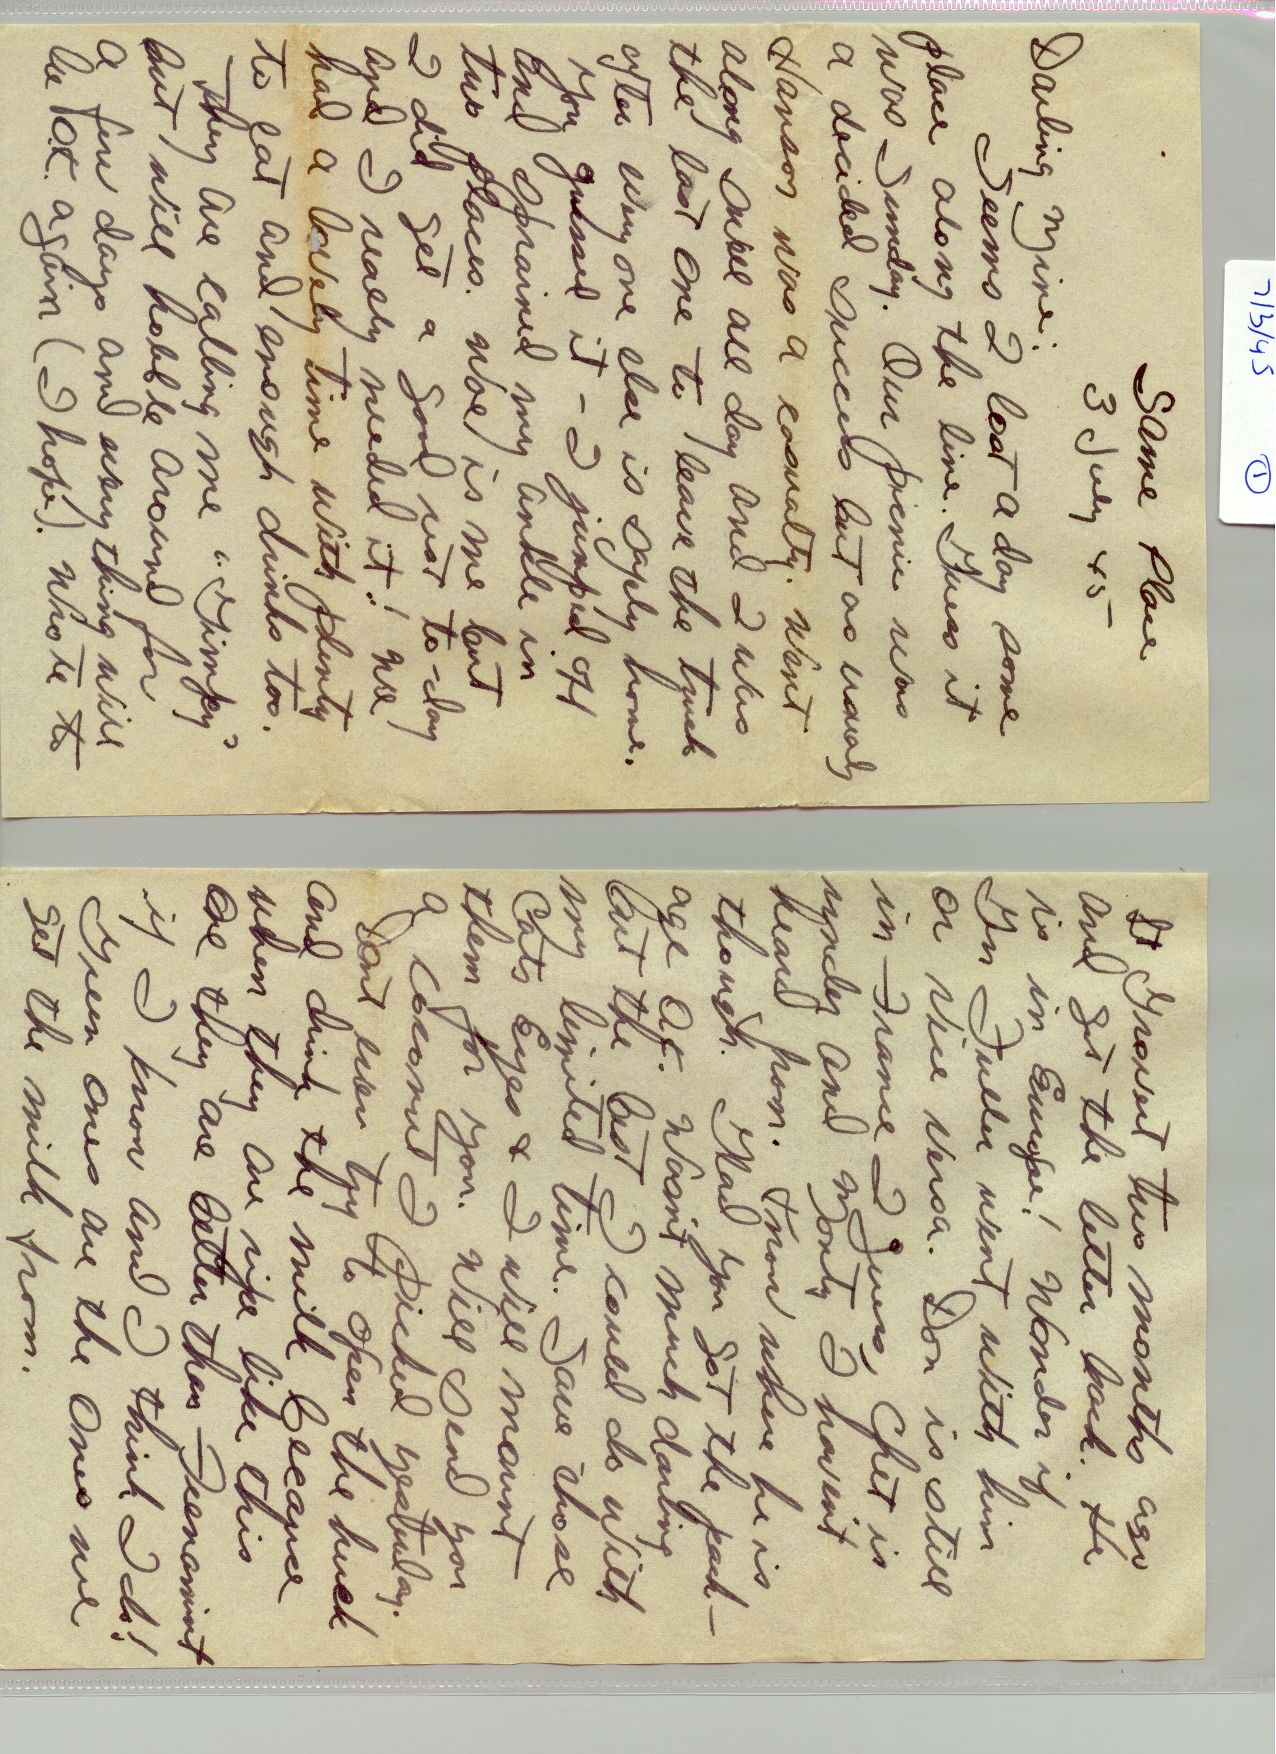 7/3/45 ①
Same Place
3 July 45
Darling Mine:
Seems I lost a day some
place along the line. Guess it
was Sunday. Our picnic was
a decided success but as usual
Hanson was a casualty. Went
along swell all day and I was
the last one to leave the truck
after everyone else is safely home.
You guessed it - I jumped off
and sprained my ankle in
two places. Woe is me but
I did get a good rest to-day
and I really needed it! We
had a lovely time with plenty
to eat and enough drinks too.
They are calling me "Gimpy"
but will hobble around for
a few days and everything will
be O.K. again (I hope). Wrote to
Lt two months ago
and got the letter back. He
is in Europe! Wonder if
Jim Fuller went with him
or vice versa. Don is still
in France I guess, Chet is
and Monty I havent
heard from. Know where he is
though. Glad you got the pack-
age O.K. Wasn't much darling
but the best I could do with
my limited time. Save those
Cats Eyes & I will mount
them for you. Will send you
a coconut I picked yesterday.
Dont even try to open the husk
and drink the milk because
when they are ripe like this
one they are better than
if I know and I think I do!
Green ones are the ones we
get the milk from.